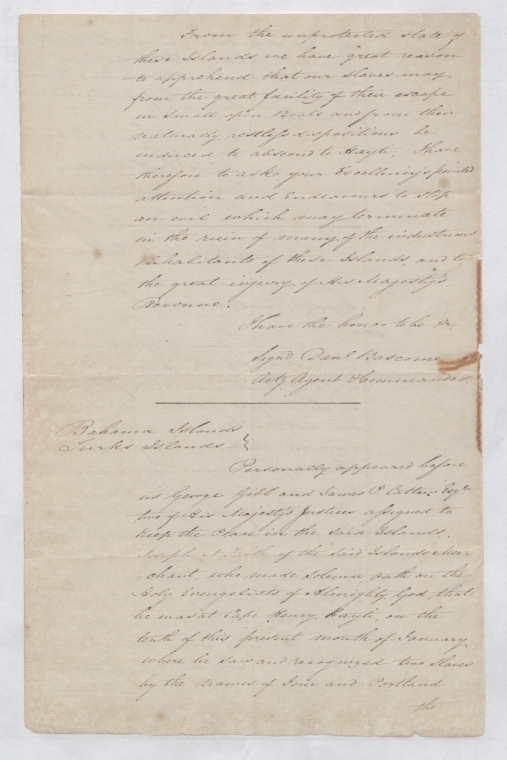 From the unprotected state of
these Islands we have great reason
to apprehend that our slaves may
from the great facility of their escape
in small open Boats and from their
naturally restless dispositions be
induced to abscond to Hayti; I have
therefore to ask your Excellency's pointed
attention and Endeavours to stop
an evil which may terminate
in the ruin of many of the industrious
inhabitants of these Islands and to
the great injury of His Majesty's
Revenue.
I have the honor to be &c
Signed, Danl Bascome
Actg Agent & Commandant
Bahama Islands
Turks Islands }
Personally appeared before
us George Gibb and James P. Esqrs
two of His Majesty's Justices assigned to
keep the Peace in the said Islands.
Joseph of the said Islands Mer-
-chant, who made solemn oath on the
Holy Evangelists of Almighty God, that
he was at Cape Henry, Hayti, on the
tenth of this present month of January
where he saw and recognized two slaves
by the names of and Portland
the